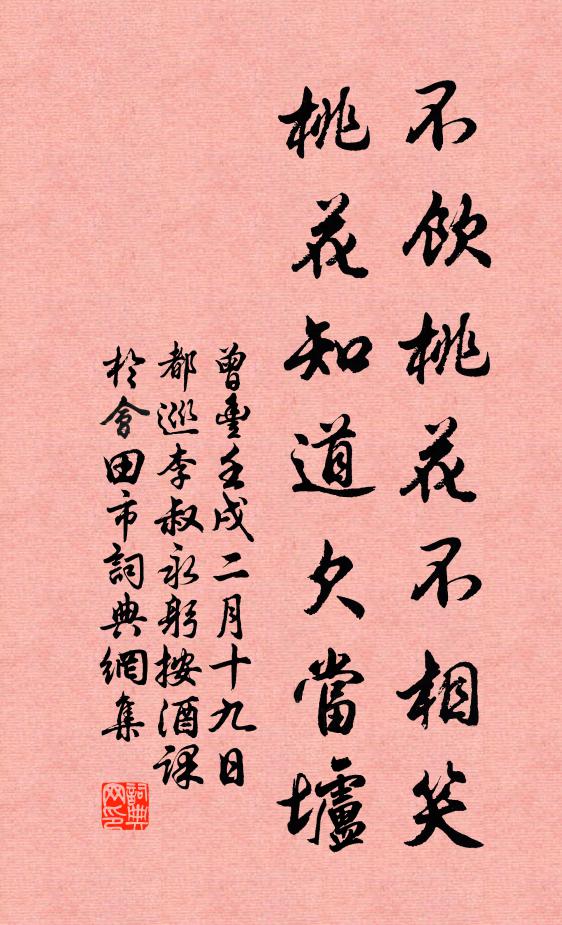 不飲桃花不相笑
桃花知道欠當壚
曾豐壬戌二月十九日
都巡李叔永躬按酒課
於會田市詞典網集
詞典网印